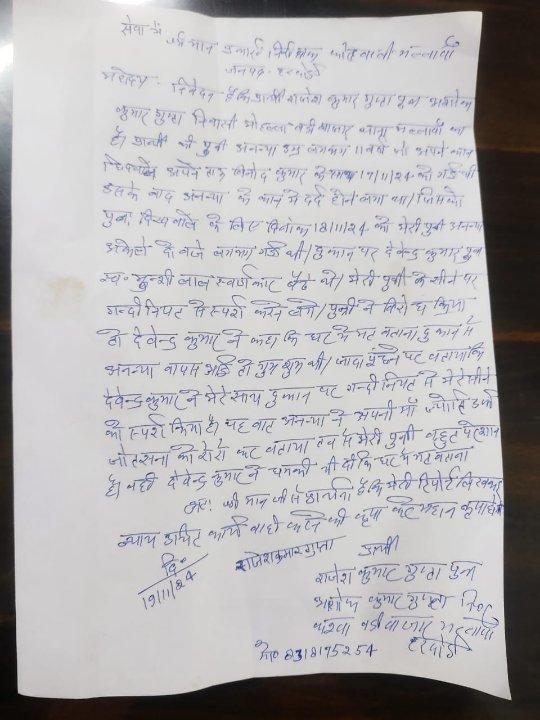 सेवा में
श्री मान प्रभारी निरीक्षक कोतवाली मल्लावां
जनपद - हरदोई
महोदय - निवेदन है कि प्रार्थी राजेश कुमार गुप्ता पुत्र अशोक
कुमार गुप्ता निवासी मोहल्ला बड़ी बाजार थाना मल्लावां का
है। प्रार्थी की पुत्री अनन्या उम्र लगभग 11 वर्ष जो अपने कान
अपने विनोद कुमार के साथ 17/11/24 को गई थी
इसके बाद अनन्या के कान में दर्द होने लगा था। जिसको
पुनः दिखाने के लिए दिनांक 18/11/24 को मेरी पुत्री अनन्या
अकेले दो बजे लगभग गई थी। दुकान पर देवेन्द्र कुमार पुत्र
स्व॰ मुन्शी लाल स्वर्णकार बैठे थे। मेरी पुत्री के सीने पर
गन्दी नियत से स्पर्श करने लगे। पुत्री ने विरोध किया
तो देवेन्द्र कुमार ने कहा कि घर में मत बताना दुकान से
अनन्या वापस आई तो गुम शुम थी। जादा पूछने पर बताया कि
देवेन्द्र कुमार ने मेरे साथ दुकान पर गन्दी नियत से मेरे सीने
को स्पर्श किया है। यह बात अनन्या ने अपनी माँ ज्योति उर्फ
जोतसना को रोरो कर बताया तब से मेरी पुत्री बहुत परेशान
है। वही देवेन्द्र कुमार ने धमकी भी दी कि घर में मत बताना
अतः श्री मान जी से प्रार्थना है कि मेरी रिपोर्ट लिखकर
न्याय उचित कार्यवाही करने की कृपा करें महान कृपा होगी
दि॰ 19/11/24
राजेश कुमार गुप्ता
प्रार्थी
राजेश कुमार गुप्ता पुत्र
अशोक कुमार गुप्ता नि॰
कस्बा बड़ी बाजार मल्लावां
हरदोई
मो॰ 8318195254